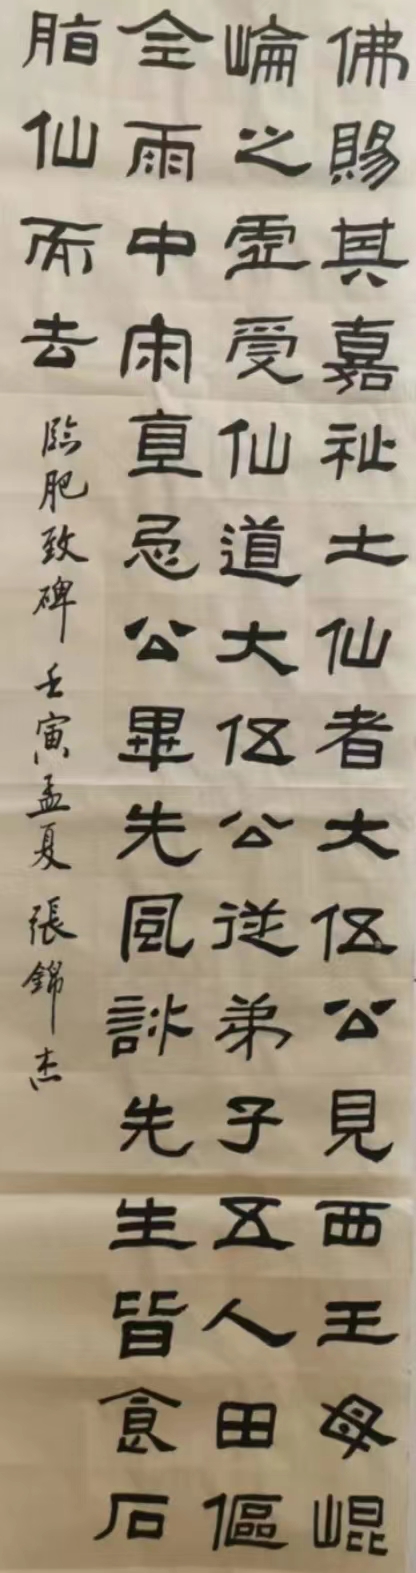 佛賜其嘉祉土仙者大伍公見西王母崐
崘之虛受仙道大伍公從弟子五人田傴
全雨中宋直忌公畢先風許先生皆食石
脂仙而去
臨肥致碑 壬寅孟夏 張錦杰